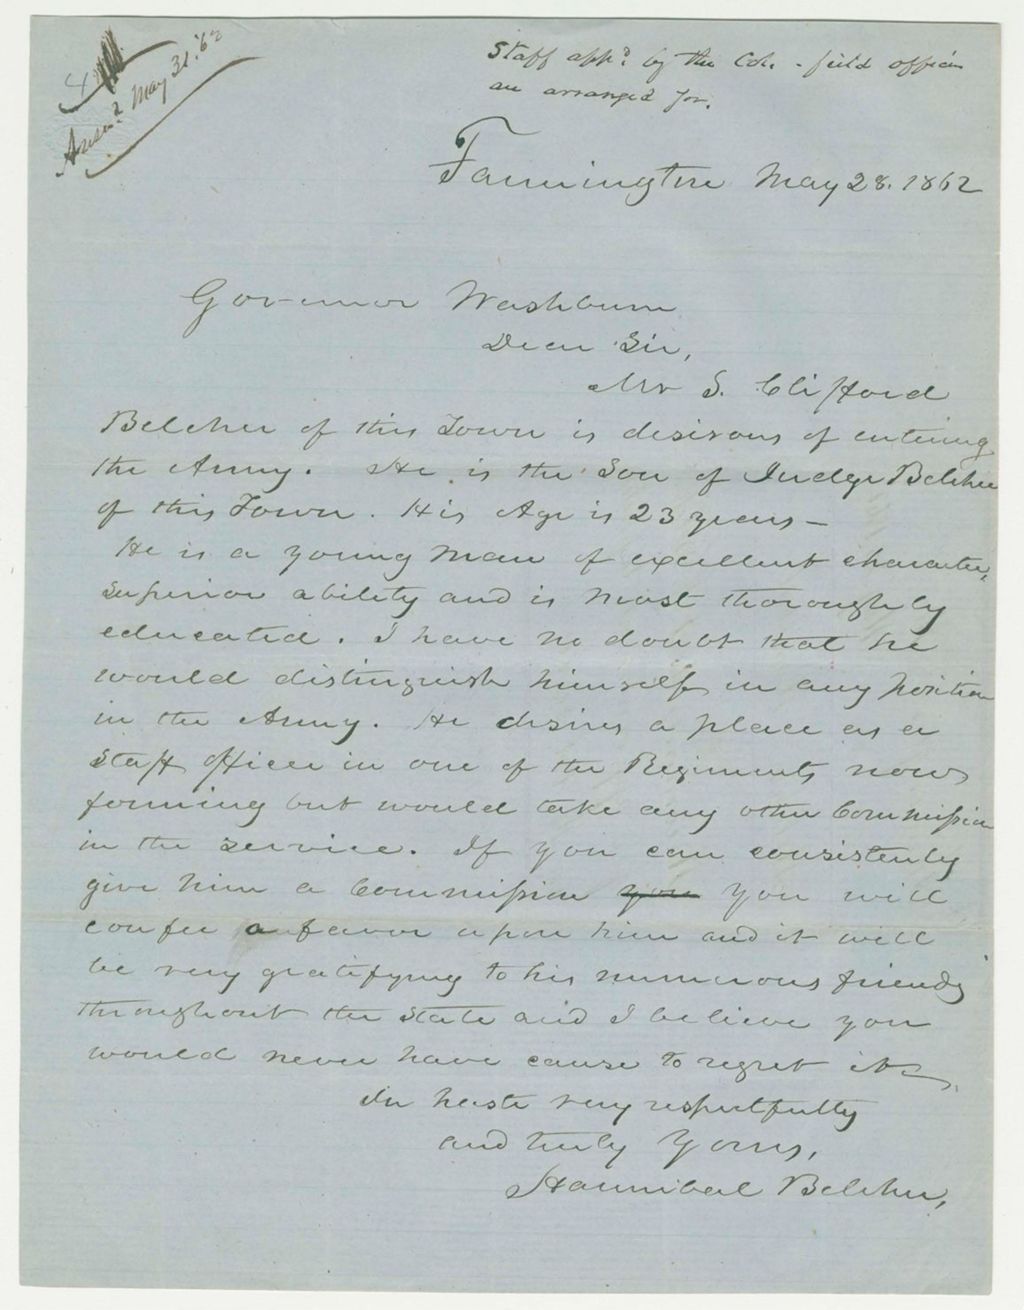 4
Ansd May 31. '62
Staff appd by the Col. - field officers
are arranged for.
Farmington May 28. 1862
Governor Washburn
Dear Sir,
Mr S. Clifford
Belcher of this Town is desirous of entering
the Army. He is the Son of Judge Belcher
of this Town. His Age is 23 years -
He is a young man of excellent character,
Superior ability and is most thoroughly
educated. I have no doubt that he
would distinguish himself in any position
in the Army. He desires a place as a
Staff officer in one of the Regiments now
forming but would take any other Commission
in the service. If you can consistently
give him a Commission you you will
confer a favor upon him and it will
be very gratifying to his numerous friends
throughout the State and I believe you
would never have cause to regret it.
In haste very respectfully
and truly Yours,
Hannibal Belcher,